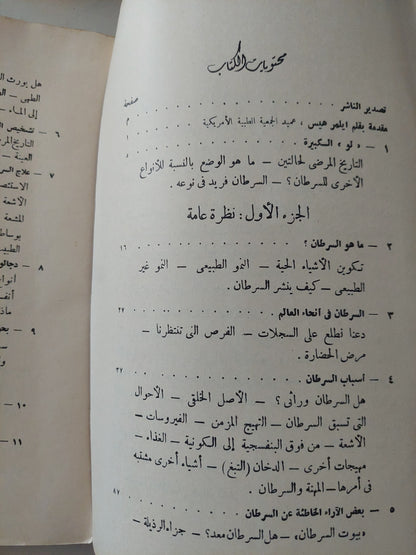 محتويات الكتاب
صفحة
تصدير الناشر
مقدمة بقلم ايلمر هيس ، عميد الجمعية الطبية الأمريكية م
١ — « لو » الكبيرة ١
التاريخ المرضى لحالتين — ما هو الوضع بالنسبة للأنواع
الأخرى للسرطان ؟ — السرطان فريد فى نوعه .
الجزء الأول : نظرة عامة
٢ — ما هو السرطان ؟ ١٦
تكوين الأشياء الحية — النمو الطبيعى — النمو غير
الطبيعى — كيف ينشر السرطان .
٣ — السرطان فى أنحاء العالم ٢٧
دعنا نطلع على السجلات — الفرص التى تنتظرنا —
مرض الحضارة .
٤ — أسباب السرطان ٣٧
هل السرطان وراثى ؟ — الأصل الخلقى — الأحوال
التى تسبق السرطان — التهيج المزمن — الفيروسات —
الأشعة — من فوق البنفسجية إلى الكونية — الغذاء —
مهيجات أخرى — الدخان ( التبغ ) — أشياء أخرى مشتبه
فى أمرها — المهنة والسرطان .
٥ — بعض الآراء الخاطئة عن السرطان ٨٧
« بيوت السرطان » — هل السرطان معد ؟ — جزاء الرذيلة —
هل يورث
الطبى —
إلى الماء
٦ — تشخيص
التاريخ المر
العينة —
٧ — علاج السر
الاستئص
الأشعة
المشعة
بوساط
الطبيب
٨ — دجالو
أنواع
أنف
ماذ
٩ — بعض
١٠ —
١١ —